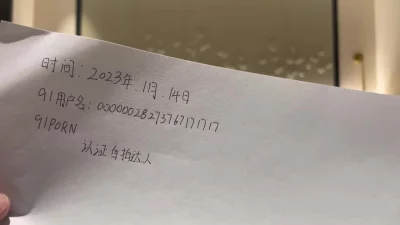 时间：2023年.1月.14日
91用户名：0000002827376717171717
91PORN
认证自拍达人